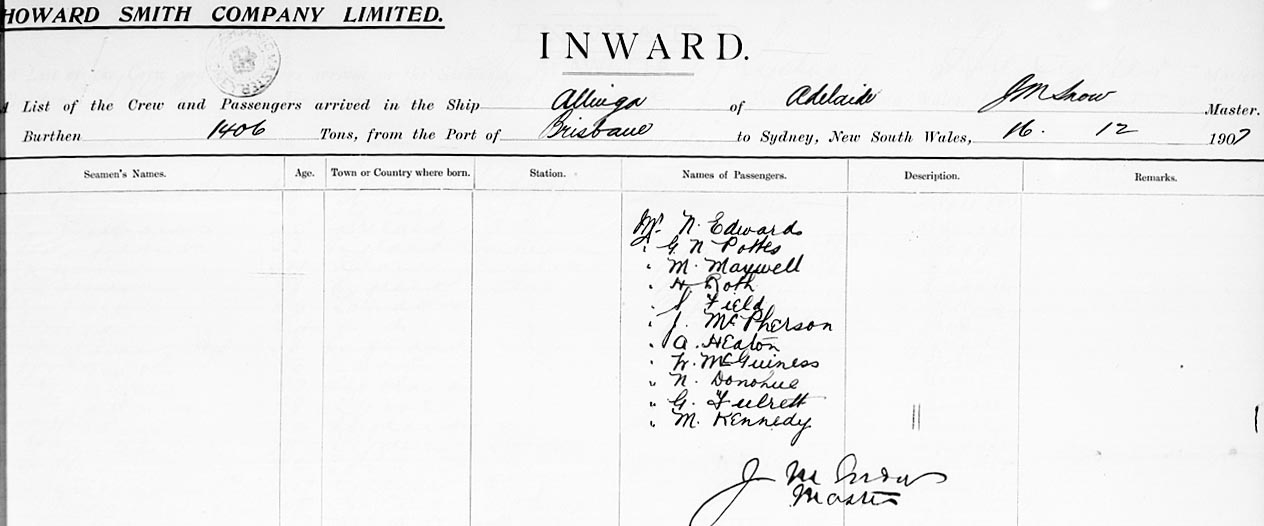 HOWARD SMITH COMPANY LIMITED.
INWARD.
A List of the Crew and Passengers arrived in the Ship Allinga of Adelaide J M Snow Master.
Burthen 1406 Tons, from the Port of Brisbane to Sydney, New South Wales, 16. 12 1907
Seamen's Names. Age. Town or Country where born. Station. Names of Passengers. Description. Remarks.
Mr. N. Edwards
" G. N Pottes
" M. Maxwell
" H Roth
" S Field
" J. McPherson
" A. Heaton
" W. McGuiness
" N. Donohue
" G.
" M. Kennedy
J M Snow
Master